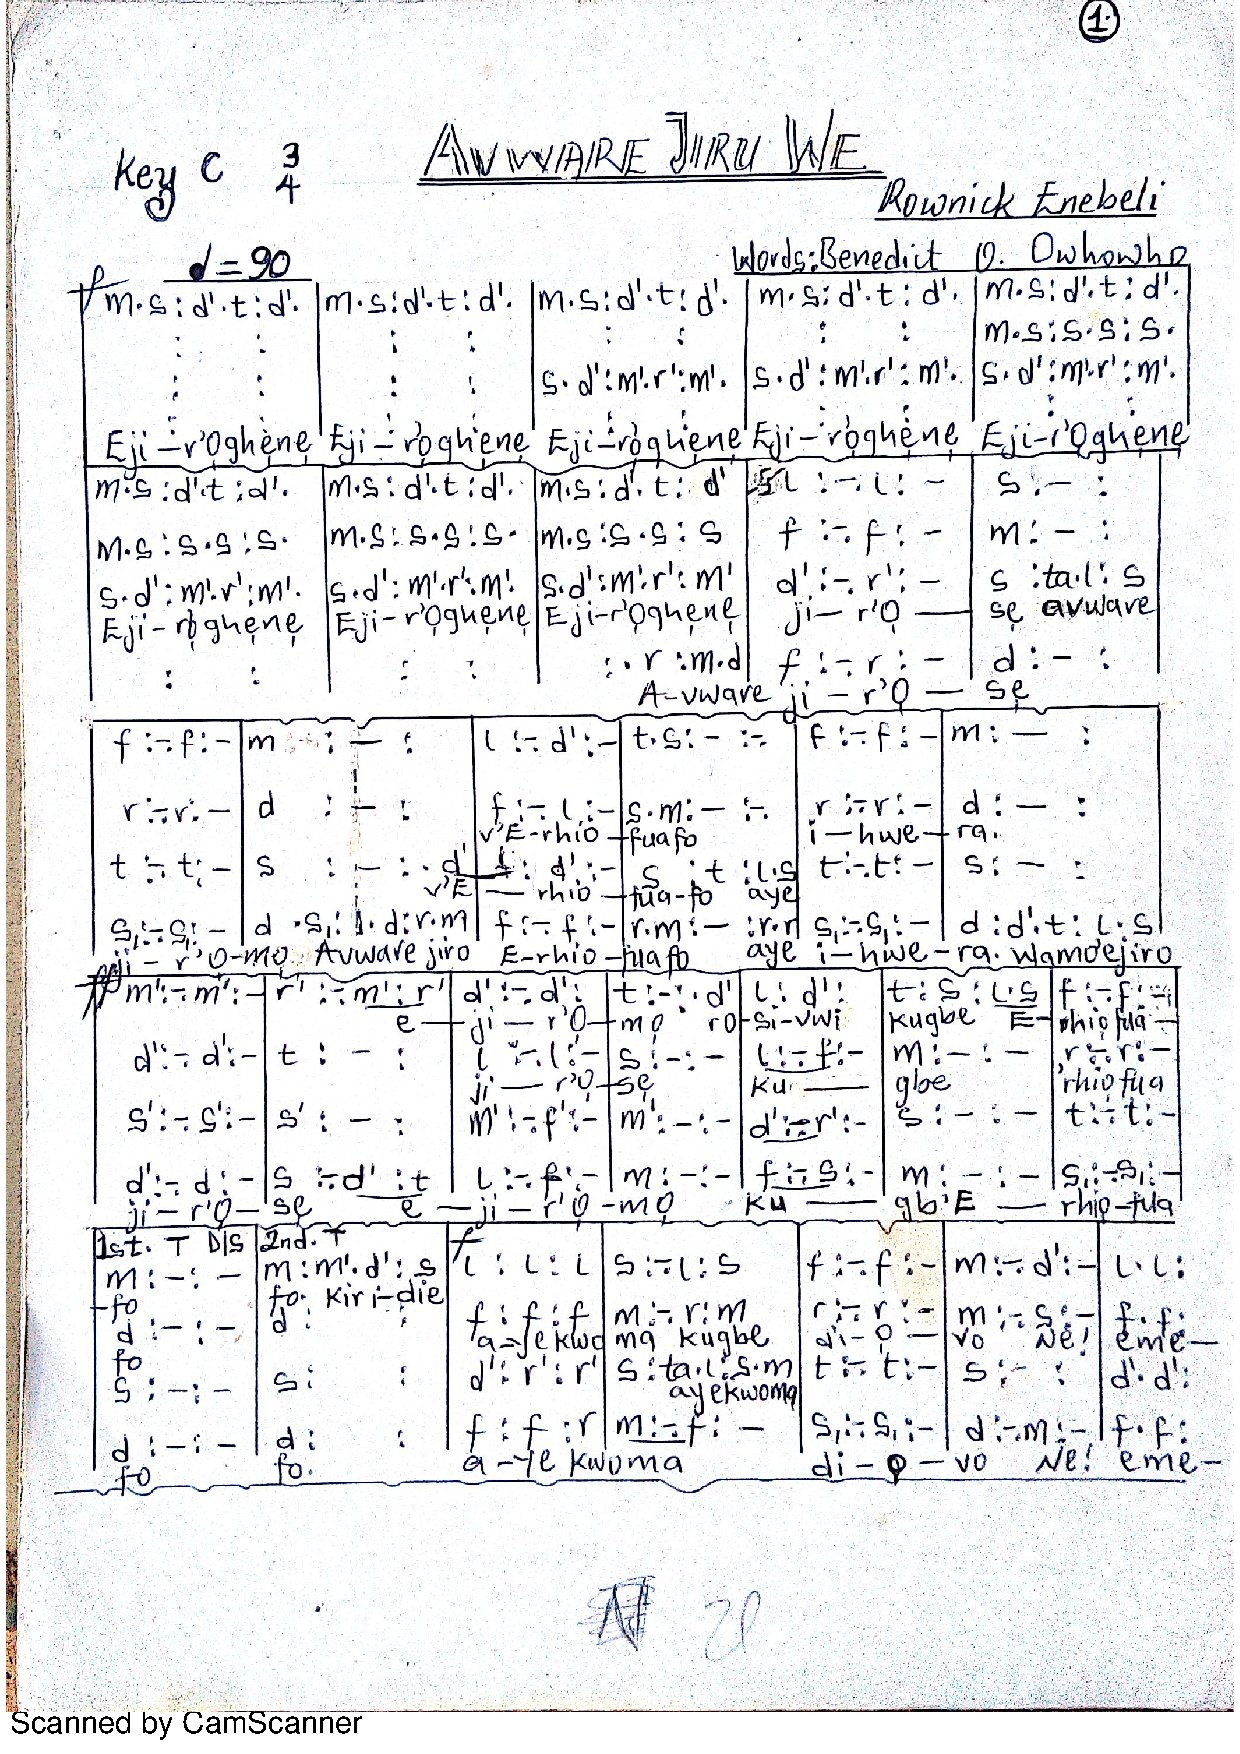 1.
AVWARE JIRU WE
Key C 3/4
Rownick Enebeli
d = 90
Words: Benedict O. Owhowho
f m.s:d'.t:d'. | m.s:d'.t:d'. | m.s:d'.t:d'. | m.s:d'.t:d'. | m.s:d'.t:d'.
: : | : : | : : | : : | m.s:s.s:s.
: : | : : | s.d':m'.r':m'. | s.d':m'.r':m'. | s.d':m'.r':m'.
: : | : : | : : | : : | : :
Eji-r'Ọghẹnẹ Eji-r'ọghẹnẹ Eji-rọghẹnẹ Eji-rọghẹnẹ Eji-r'Ọghẹnẹ
m.s:d'.t:d'. | m.s:d'.t:d'. | m.s:d'.t:d' | l:-.l:- | s:-:
m.s:s.s:s. | m.s:s.s:s. | m.s:s.s:s | f:-.f:- | m:-:
s.d':m'.r':m'. | s.d':m'.r':m'. | s.d':m'.r':m' | d':-.r':- | s:ta.l:s
Eji-rọghẹnẹ Eji-r'Ọghẹnẹ Eji-r'Ọghẹnẹ ji-r'Ọ — sẹ avware
: : | : : | :.r:m.d | f:-.r:- | d:-:
A-vware ji-r'Ọ — sẹ
f:-.f:- | m:-: | l:-.d':- | t.s:-:-. | f:-.f:- | m:-:
r:-.r:- | d:-: | f:-.l:- | s.m:-:-. | r:-.r:- | d:-:
v'E-rhio-fuafo i-hwe-ra.
t:-.t:- | s:-:.d' | :d':- | s:t:l.s | t:-.t:- | s:-:
v'E — rhio-fua-fo aye
s₁:-.s₁:- | d.s₁:l.d:r.m | f:-.f:- | r.m:-:r.r | s₁:-.s₁:- | d:d'.t:l.s
ji-r'Ọ-mọ Avware jiro E-rhio-fuafo aye i-hwe-ra. wamọejiro
ff m':-.m':- | r':-.m':r' | d':-.d': | t:-:.d' | l:d': | t:s:l.s | f:-.f:-
e — ji-r'Ọ-mọ ro-si-vwi kugbe E-rhiofua-
d':-.d':- | t:-: | l:-.l:- | s:-:- | l:-.f:- | m:-:- | r:-.r:-
ji-r'Ọ-sẹ ku — gbe 'rhiofua
s':-.s':- | s':-: | m':-.f':- | m':-:- | d':-.r':- | s:-:- | t:-.t:-
d':-.d:- | s:-.d':t | l:-.f:- | m:-:- | f:-.s:- | m:-:- | s₁:-.s₁:-
ji-r'Ọ-sẹ e-ji-r'Ọ-mọ ku — gb'E — rhio-fua
1st. T D/S | 2nd. T f
m:-:- | m:m'.d':s | l:l:l | s:-.l:s | f:-.f:- | m:-.d':- | l.l:
fo fo. Kiri-die
d:-:- | d: : | f:f:f | m:-.r:m | r:-.r:- | m:-.s:- | f.f:
fo a-ye kwo ma kugbe di-ọ-vo Ne! eme-
s:-:- | s: : | d':r':r' | s:ta.l:s.m | t:-.t:- | s:-: | d'.d':
ayekwoma
d:-:- | d: : | f:f:r | m:-.f:- | s₁:-.s₁:- | d:-.m:- | f.f:
fo fo. a-ye kwoma di-ọ-vo Ne! eme-
Scanned by CamScanner